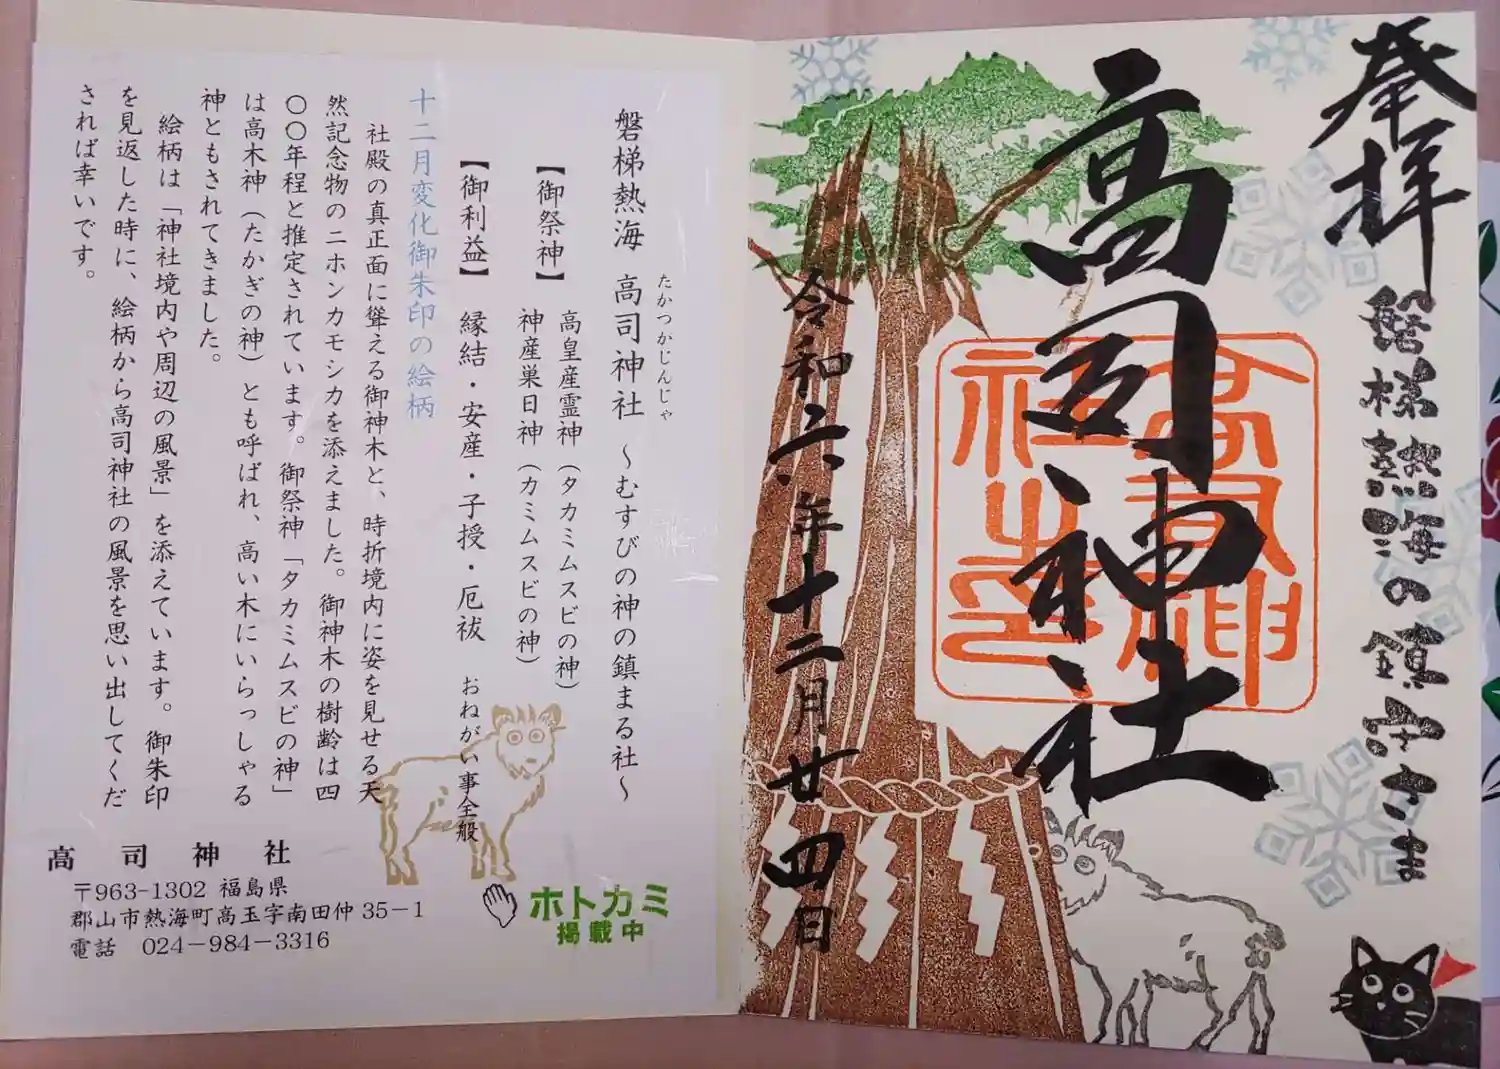 奉拝
磐梯熱海の鎮守さま
高司神社
高司神社之印
令和六年十二月廿四日
磐梯熱海 高司神社 ～むすびの神の鎮まる社～
たかつかじんじゃ
【御祭神】 高皇産霊神（タカミムスビの神）
神産巣日神（カミムスビの神）
【御利益】 縁結・安産・子授・厄祓 おねがい事全般
十二月変化御朱印の絵柄
社殿の真正面に聳える御神木と、時折境内に姿を見せる天
然記念物のニホンカモシカを添えました。御神木の樹齢は四
〇〇年程と推定されています。御祭神「タカミムスビの神」
は高木神（たかぎの神）とも呼ばれ、高い木にいらっしゃる
神ともされてきました。
絵柄は「神社境内や周辺の風景」を添えています。御朱印
を見返した時に、絵柄から高司神社の風景を思い出してくだ
されば幸いです。
高司神社
〒963-1302 福島県
郡山市熱海町高玉字南田仲35－1
電話 024－984－3316
ホトカミ
掲載中